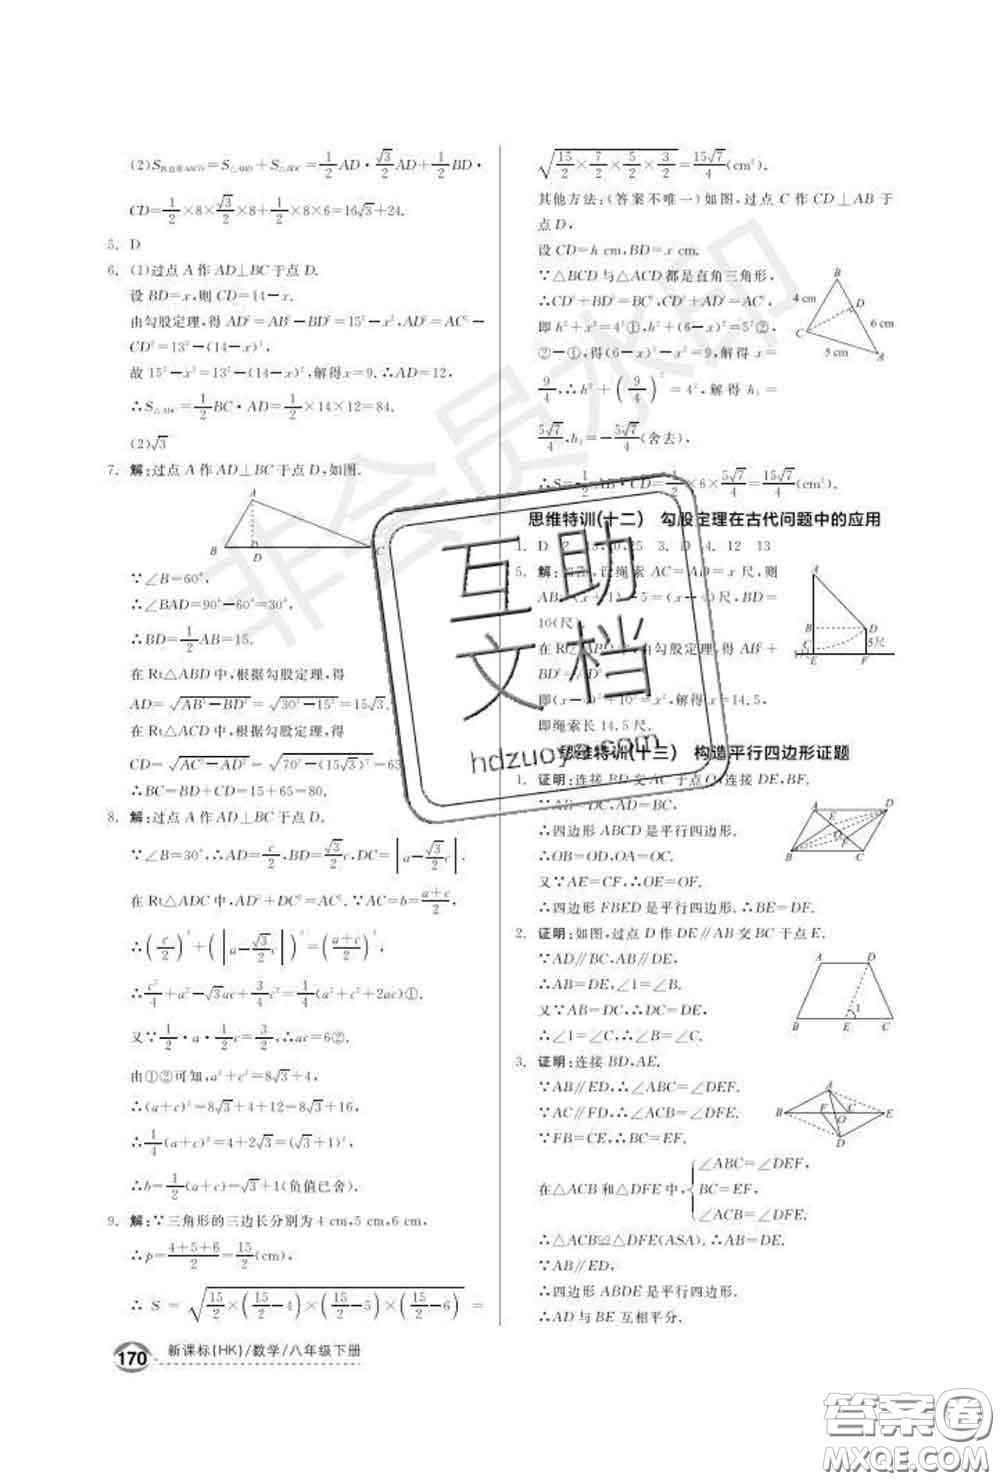 (2)S四边形ABCD=S△ABD+S△BDC=1/2AD·√3/2AD+1/2BD·
CD=1/2×8×√3/2×8+1/2×8×6=16√3+24.
5. D
6. (1)过点A作AD⊥BC于点D.
设BD=x,则CD=14-x.
由勾股定理,得AD²=AB²-BD²=15²-x²,AD²=AC²-
CD²=13²-(14-x)²,
故15²-x²=13²-(14-x)²,解得x=9.∴AD=12,
∴S△ABC=1/2BC·AD=1/2×14×12=84.
(2)√3
7. 解:过点A作AD⊥BC于点D,如图.
A
B D C
∵∠B=60°,
∴∠BAD=90°-60°=30°,
∴BD=1/2AB=15.
在Rt△ABD中,根据勾股定理,得
AD=√(AB²-BD²)=√(30²-15²)=15√3.
在Rt△ACD中,根据勾股定理,得
CD=√(AC²-AD²)=√(70²-(15√3)²)=65
∴BC=BD+CD=15+65=80.
8. 解:过点A作AD⊥BC于点D.
∵∠B=30°,∴AD=c/2,BD=√3/2c,DC=|a-√3/2c|.
在Rt△ADC中,AD²+DC²=AC².∵AC=b=(a+c)/2,
∴(c/2)²+(|a-√3/2c|)²=((a+c)/2)²
∴c²/4+a²-√3ac+3/4c²=1/4(a²+c²+2ac)①.
又∵1/2·a·1/2c=3/2,∴ac=6②.
由①②可知,a²+c²=8√3+4,
∴(a+c)²=8√3+4+12=8√3+16,
∴1/4(a+c)²=4+2√3=(√3+1)²,
∴b=1/2(a+c)=√3+1(负值已舍).
9. 解:∵三角形的三边长分别为4 cm,5 cm,6 cm,
∴p=(4+5+6)/2=15/2(cm),
∴ S = √(15/2×(15/2-4)×(15/2-5)×(15/2-6)) =
170 新课标(HK)/数学/八年级下册
√(15/2×7/2×5/2×3/2)=15√7/4(cm²).
其他方法:(答案不唯一)如图,过点C作CD⊥AB于
点D,
设CD=h cm,BD=x cm.
∵△BCD与△ACD都是直角三角形,
∴CD²+BD²=BC²,CD²+AD²=AC²,
即h²+x²=4²①,h²+(6-x)²=5²②,
②-①,得(6-x)²-x²=9,解得x=
9/4,∴h²+(9/4)²=4²,解得h₁=
5√7/4,h₂=-5√7/4(舍去),
∴S=1/2AB·CD=1/2×6×5√7/4=15√7/4(cm²).
B
4 cm D
6 cm
C
5 cm A
思维特训(十二) 勾股定理在古代问题中的应用
1. D 3. D 4. 12 13
5. 解:如图,设绳索AC=AD=x尺,则
10(尺
在Rt△ 中,由勾股定理,得AB²+
BD²=AD²
解得x=14.5,
即绳索长14.5尺.
A
B D
C 5尺
E F
思维特训(十三) 构造平行四边形证题
1. 证明:连接BD交AC于点O,连接DE,BF.
∵AB=DC,AD=BC.
∴四边形ABCD是平行四边形.
∴OB=OD,OA=OC.
又∵AE=CF,∴OE=OF.
∴四边形FBED是平行四边形.∴BE=DF.
A D
E
O
F
B C
2. 证明:如图,过点D作DE∥AB交BC于点E.
∵AD∥BC,AB∥DE,
∴AB=DE,∠1=∠B.
又∵AB=DC,∴DC=DE.
∴∠1=∠C,∴∠B=∠C.
A D
1
B E C
3. 证明:连接BD,AE.
∵AB∥ED,∴∠ABC=∠DEF.
∵AC∥FD,∴∠ACB=∠DFE.
∵FB=CE,∴BC=FE.
在△ACB和△DFE中,{∠ABC=∠DEF,
BC=EF,
∠ACB=∠DFE.
∴△ACB≌△DFE(ASA).∴AB=DE.
∵AB∥ED,
∴四边形ABDE是平行四边形.
∴AD与BE互相平分.
A
B F C E
O
D
非会员水印
互助
文档
hdzuoye.com
答案圈
MXQE.COM